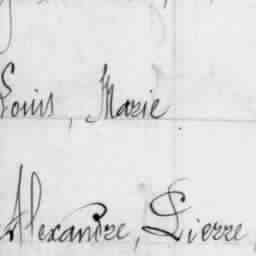 Louis, Marie
Alexandre, Pierre